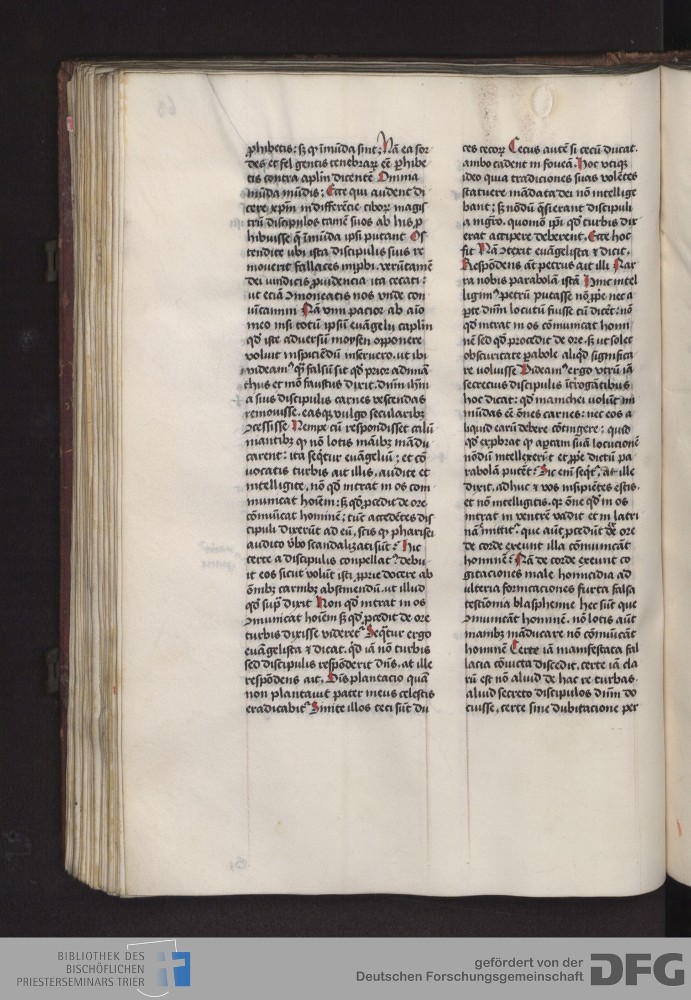 ꝓhibetis: sꝫ qꝛ īmūda sint: Nā ea sor
des et fel gentis tenebraꝝ eē ꝓhibe
tis contra apłm dicentē Omnia
mūda mūdis: Ecce qui audent di
cere xp̄m indifferēcie ciboꝝ magis
trū discipulos tamē suos ab his ꝓ
hibuisse q̄ īmūda ipsi putant Os
tendite ubi ista discipulis suis re
moverit fallaces improbi. verūtamē
dei vindicis ꝓvidencia ita cecati:
ut eciā ꝯmoneatis nos unde con
vīcamini Nā vim pacior ab aīo
meo nisi totū ipsū evāgelii capłm
qd̄ iste adversū moysen opponere
voluit inspiciēdū inseruero. ut ibi
videamꝰ q̄ falsū sit qd̄ prior adimā
thus et mō faustus dixit. dn̄m ihm̄
a suis discipulis carnes vescendas
removisse. easqꝫ vulgo secularibꝫ
ꝯcessisse Nempe cū respondisset calū
niantibꝫ qꝛ nō lotis māibꝫ mādu
carent: ita seq̄tur evāgeliū: et cō
vocatis turbis ait illis, audite et
intelligite, nō qd̄ intrat in os com
municat hoīem: sꝫ qd̄ ꝓcedit de ore
cōmūicat hominē: tūc accedētes dis
cipuli dixerūt ad eū, scis qꝛ pharisei
audito v̄bo scandalizati sūt: Hic
certe a discipulis conpellatꝰ debu
it eos sicut volūt isti ꝓprie docere ab
ōnibꝫ carnibꝫ abstinendū. ut illud
qd̄ sup̄ dixit Non qd̄ intrat in os
ꝯmunicat hoīem sꝫ qd̄ ꝓcedit de ore
turbis dixisse videretꝰ Seq̄tur ergo
evāgelista ⁊ dicat. qd̄ iā nō turbis
sed discipulis respōderit dn̄s. at ille
respōdens ait, Om̄s plantacio quā
non plantavit pater meus celestis
eradicabitꝰ Sinite illos ceci sūt du
ces cecoꝝ Cecus autē si cecū ducat.
ambo cadent in foveā. Hoc utiqꝫ
ideo quia tradiciones suas volētes
statuere mādata dei nō intellige
bant: sꝫ nōdū q̄sierant discipuli
a mgr̄o. quomō ipsi qd̄ turbis dix
erat accipere deberent. Ecce hoc
fit Nā ꝯtexit evāgelista ⁊ dicit.
Respōdens aūt petrus ait illi Nar
ra nobis parabolā istā Hinc intel
ligimꝰ petrū putasse nō ꝓprie nec a
perte dn̄m locutū fuisse cū dicēt: nō
qd̄ intrat in os cōmunicat homi
nē sed qd̄ ꝓcedit de ore. sꝫ ut solet
obscuritate ꝑabole aliqd̄ significa
re voluisse Videamꝰ ergo utrū iā
secrecius discipulis īterogātibus
hoc dicat: qd̄ manichei volūt in
mūdas eē ōnes carnes: nec eos a
liquid earū debere cōtingere: quid
qd̄ exꝓbrat qꝛ aptam suā locucionē
nōdū intellexerūt et ꝓprie dictū pa
rabolā putēt: Sic enī seqt̄, at ille
dixit. adhuc ⁊ vos insipiētes estis.
et nō intelligitis. qꝛ ōne qd̄ in os
intrat in ventrē vadit et in latri
nā īmittitꝰ. que aūt ꝓcedūt de ore
de corde exeunt illa cōmunicāt
hominē: Nā de corde exeunt co
gitaciones male homicidia ad
ulteria fornicaciones furta falsa
testiōnia blasphemie hec sūt que
ꝯmunicāt hominē. nō lotis aūt
manibꝫ māducare nō cōmūicāt
hominē Certe iā manifestata fal
lacia cōvicta discedit. certe iā cla
rū est nō aliud de hac re turbas.
aliud secreto discipulos dn̄m do
cuisse, certe sine dubitacione per
BIBLIOTHEK DES
BISCHÖFLICHEN
PRIESTERSEMINARS TRIER
gefördert von der
Deutschen Forschungsgemeinschaft
DFG